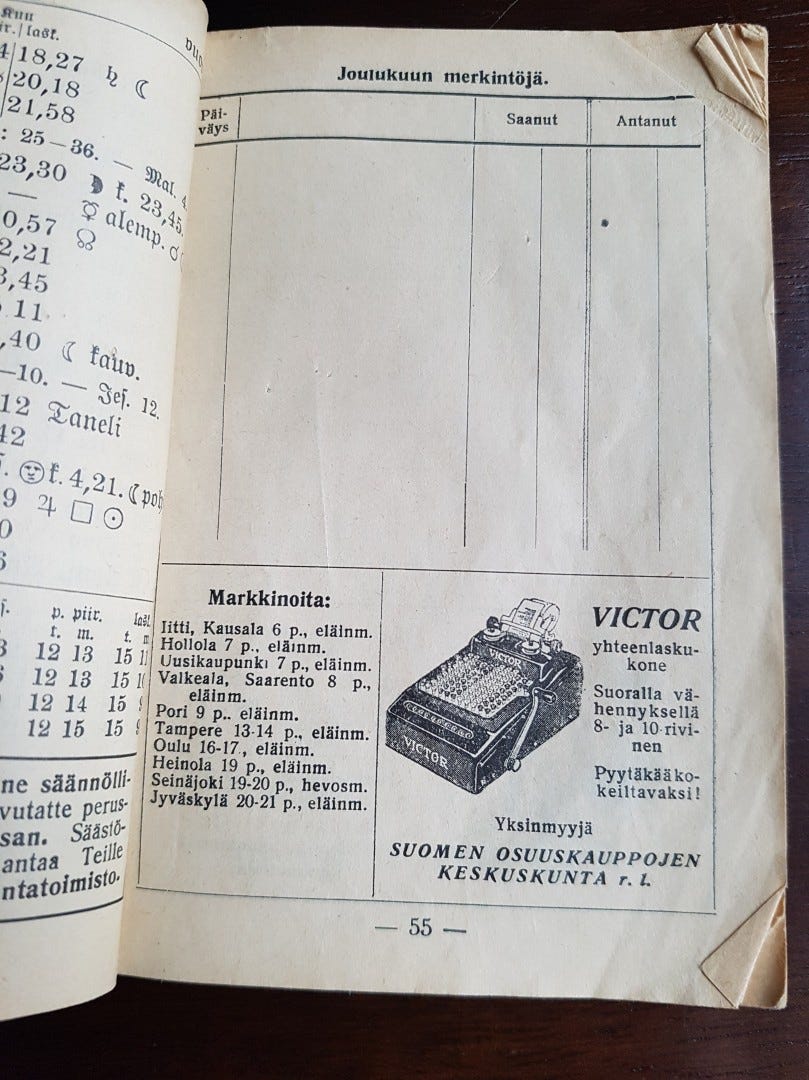 Kuu
laśk.
18,27 ♄ ☾
20,18
21,58
: 25—36. — Mal. 4.
23,30 k. 23,45.
— ☿ alemp. ☌
0,57 ☊
2,21
3,45
11
,40 ☾ kauv.
—10. — Jes. 12.
12 Taneli
42
k. 4,21. ☾ poh
9 ♃ □ ☉
0
p. piir. laśk.
t. m. t. m
12 13 15
12 13 15
12 14 15
12 15 15
ne säännölli-
vutatte perus-
san. Säästö-
antaa Teille
ntatoimisto.
Joulukuun merkintöjä.
Päi-
väys
Saanut
Antanut
Markkinoita:
Iitti, Kausala 6 p., eläinm.
Hollola 7 p., eläinm.
Uusikaupunki 7 p., eläinm.
Valkeala, Saarento 8 p.,
eläinm.
Pori 9 p.. eläinm.
Tampere 13-14 p., eläinm.
Oulu 16-17., eläinm.
Heinola 19 p., eläinm.
Seinäjoki 19-20 p., hevosm.
Jyväskylä 20-21 p., eläinm.
VICTOR
VICTOR
VICTOR
yhteenlasku-
kone
Suoralla vä-
hennyksellä
8- ja 10-rivi-
nen
Pyytäkää ko-
keiltavaksi!
Yksinmyyjä
SUOMEN OSUUSKAUPPOJEN
KESKUSKUNTA r. l.
— 55 —